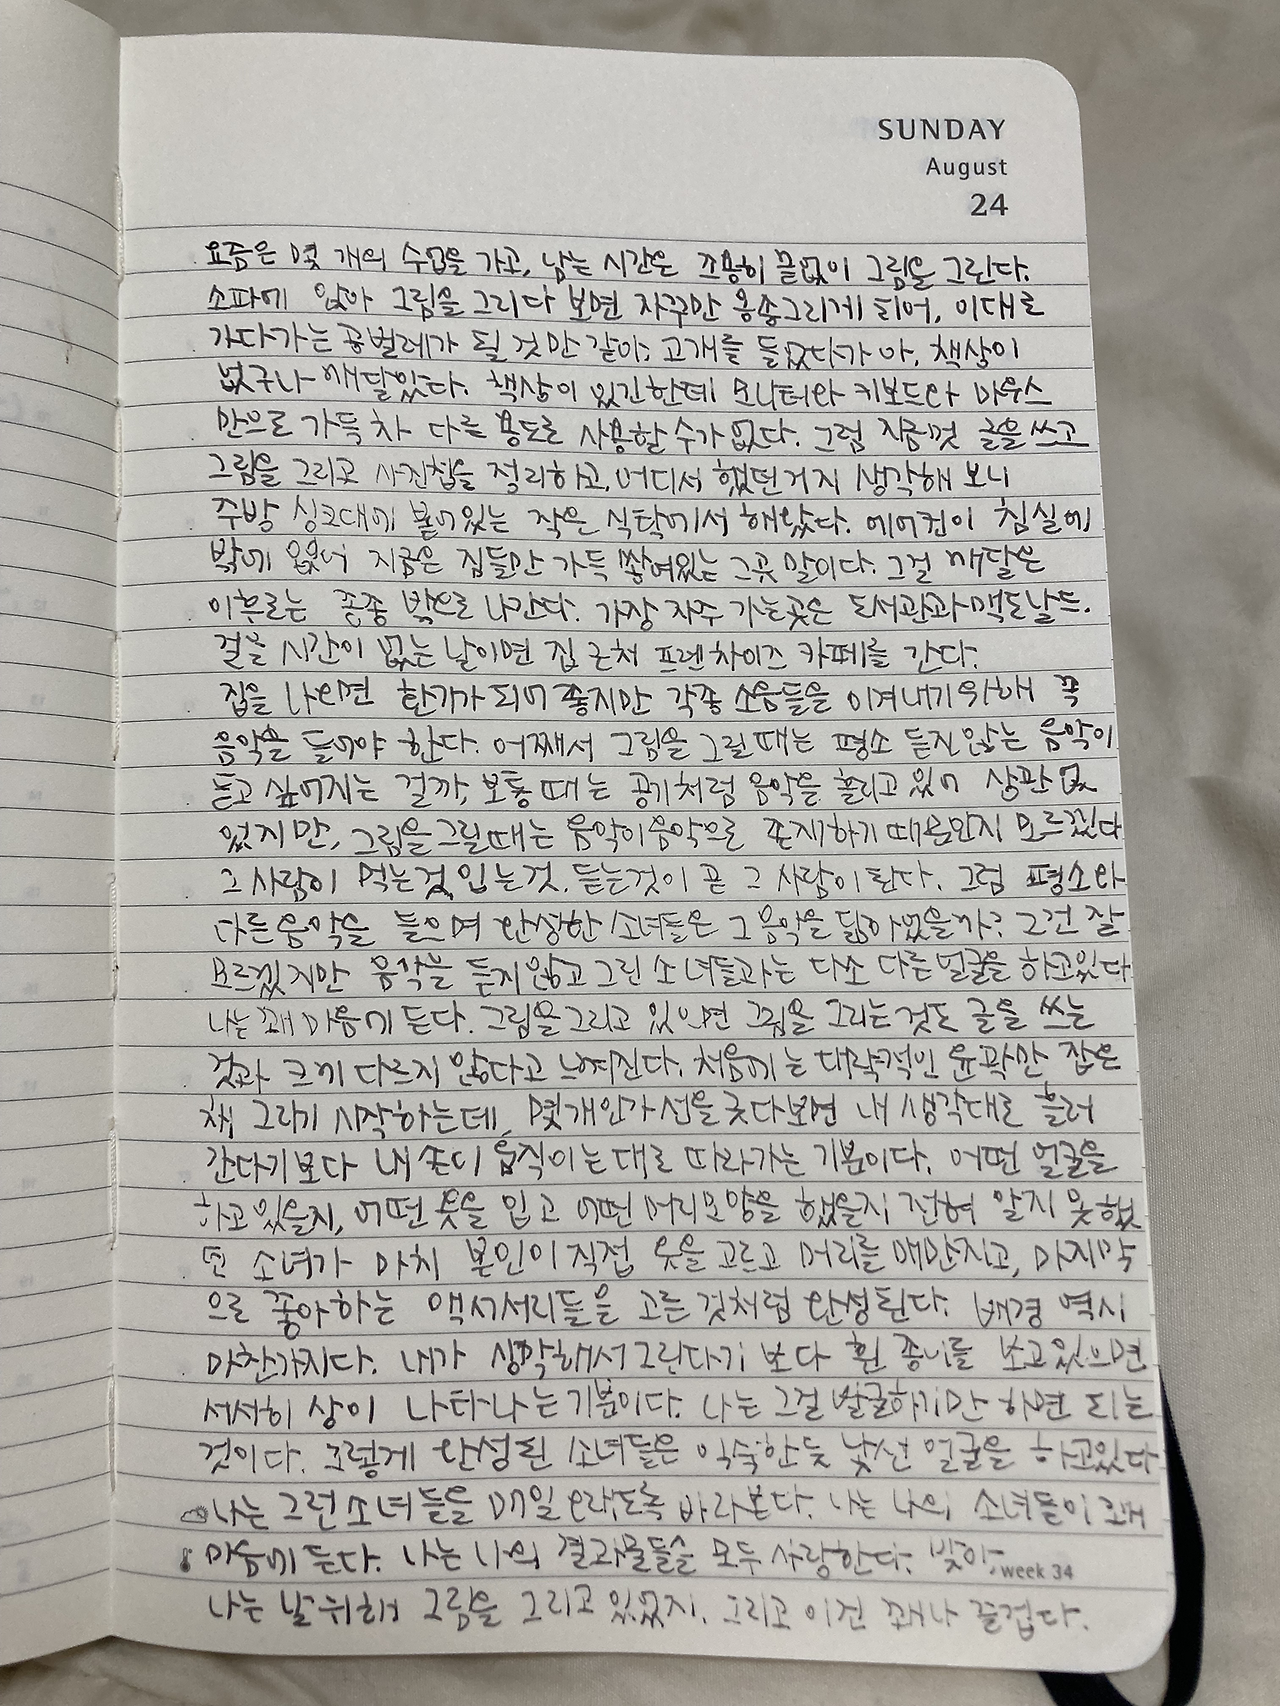 SUNDAY
August
24
요즘은 몇 개의 수업을 가고, 남는 시간은 조용히 끝없이 그림을 그린다.
소파에 앉아 그림을 그리다 보면 자꾸만 옹송그리게 되어, 이대로
가다가는 공벌레가 될 것만 같아. 고개를 들었다가 아, 책상이
없구나 깨달았다. 책상이 있긴한데 모니터와 키보드와 마우스
만으로 가득 차 다른 용도로 사용할 수가 없다. 그럼 지금껏 글을 쓰고
그림을 그리고 사진첩을 정리하고, 어디서 했던거지 생각해 보니
주방 싱크대에 붙어있는 작은 식탁에서 해왔다. 에어컨이 침실에
밖에 없어 지금은 짐들만 가득 쌓여있는 그곳 말이다. 그걸 깨달은
이후로는 종종 밖으로 나간다. 가장 자주 가는곳은 도서관과 맥도날드.
걸을 시간이 없는 날이면 집 근처 프렌차이즈 카페를 간다.
집을 나오면 환기가 되어 좋지만 각종 소음들을 이겨내기 위해 꼭
음악을 들어야 한다. 어째서 그림을 그릴 때는 평소 듣지 않는 음악이
듣고 싶어지는 걸까, 보통 때는 공기처럼 음악을 흘리고 있어 상관 없
었지만, 그림을 그릴때는 음악이 음악으로 존재하기 때문인지 모르겠다
그 사람이 먹는것, 입는 것, 듣는것이 곧 그 사람이 된다. 그럼 평소와
다른 음악을 들으며 완성한 소녀들은 그 음악을 닮아있을까? 그건 잘
모르겠지만 음악을 듣지 않고 그린 소녀들과는 다소 다른 얼굴을 하고있다
나는 꽤 마음에 든다. 그림을 그리고 있으면 그림을 그리는 것도 글을 쓰는
것과 크게 다르지 않다고 느껴진다. 처음에는 대략적인 윤곽만 잡은
채 그리기 시작하는데, 몇개인가 선을 긋다보면 내 생각대로 흘러
간다기보다 내 손이 움직이는 대로 따라가는 기분이다. 어떤 얼굴을
하고 있을지, 어떤 옷을 입고 어떤 머리모양을 했을지 전혀 알지 못했
던 소녀가 마치 본인이 직접 옷을 고르고 머리를 매만지고, 마지막
으로 좋아하는 액서서리들을 고른 것처럼 완성된다. 배경 역시
마찬가지다. 내가 생각해서 그린다기 보다 흰 종이를 보고있으면
서서히 상이 나타나는 기분이다. 나는 그걸 발굴하기만 하면 되는
것이다. 그렇게 완성된 소녀들은 익숙한듯 낯선 얼굴을 하고있다
나는 그런 소녀들을 매일 오래도록 바라본다. 나는 나의 소녀들이 꽤
마음에 든다. 나는 나의 결과물들을 모두 사랑한다. 맞아,
week 34
나는 날 위해 그림을 그리고 있었지. 그리고 이건 꽤나 즐겁다.